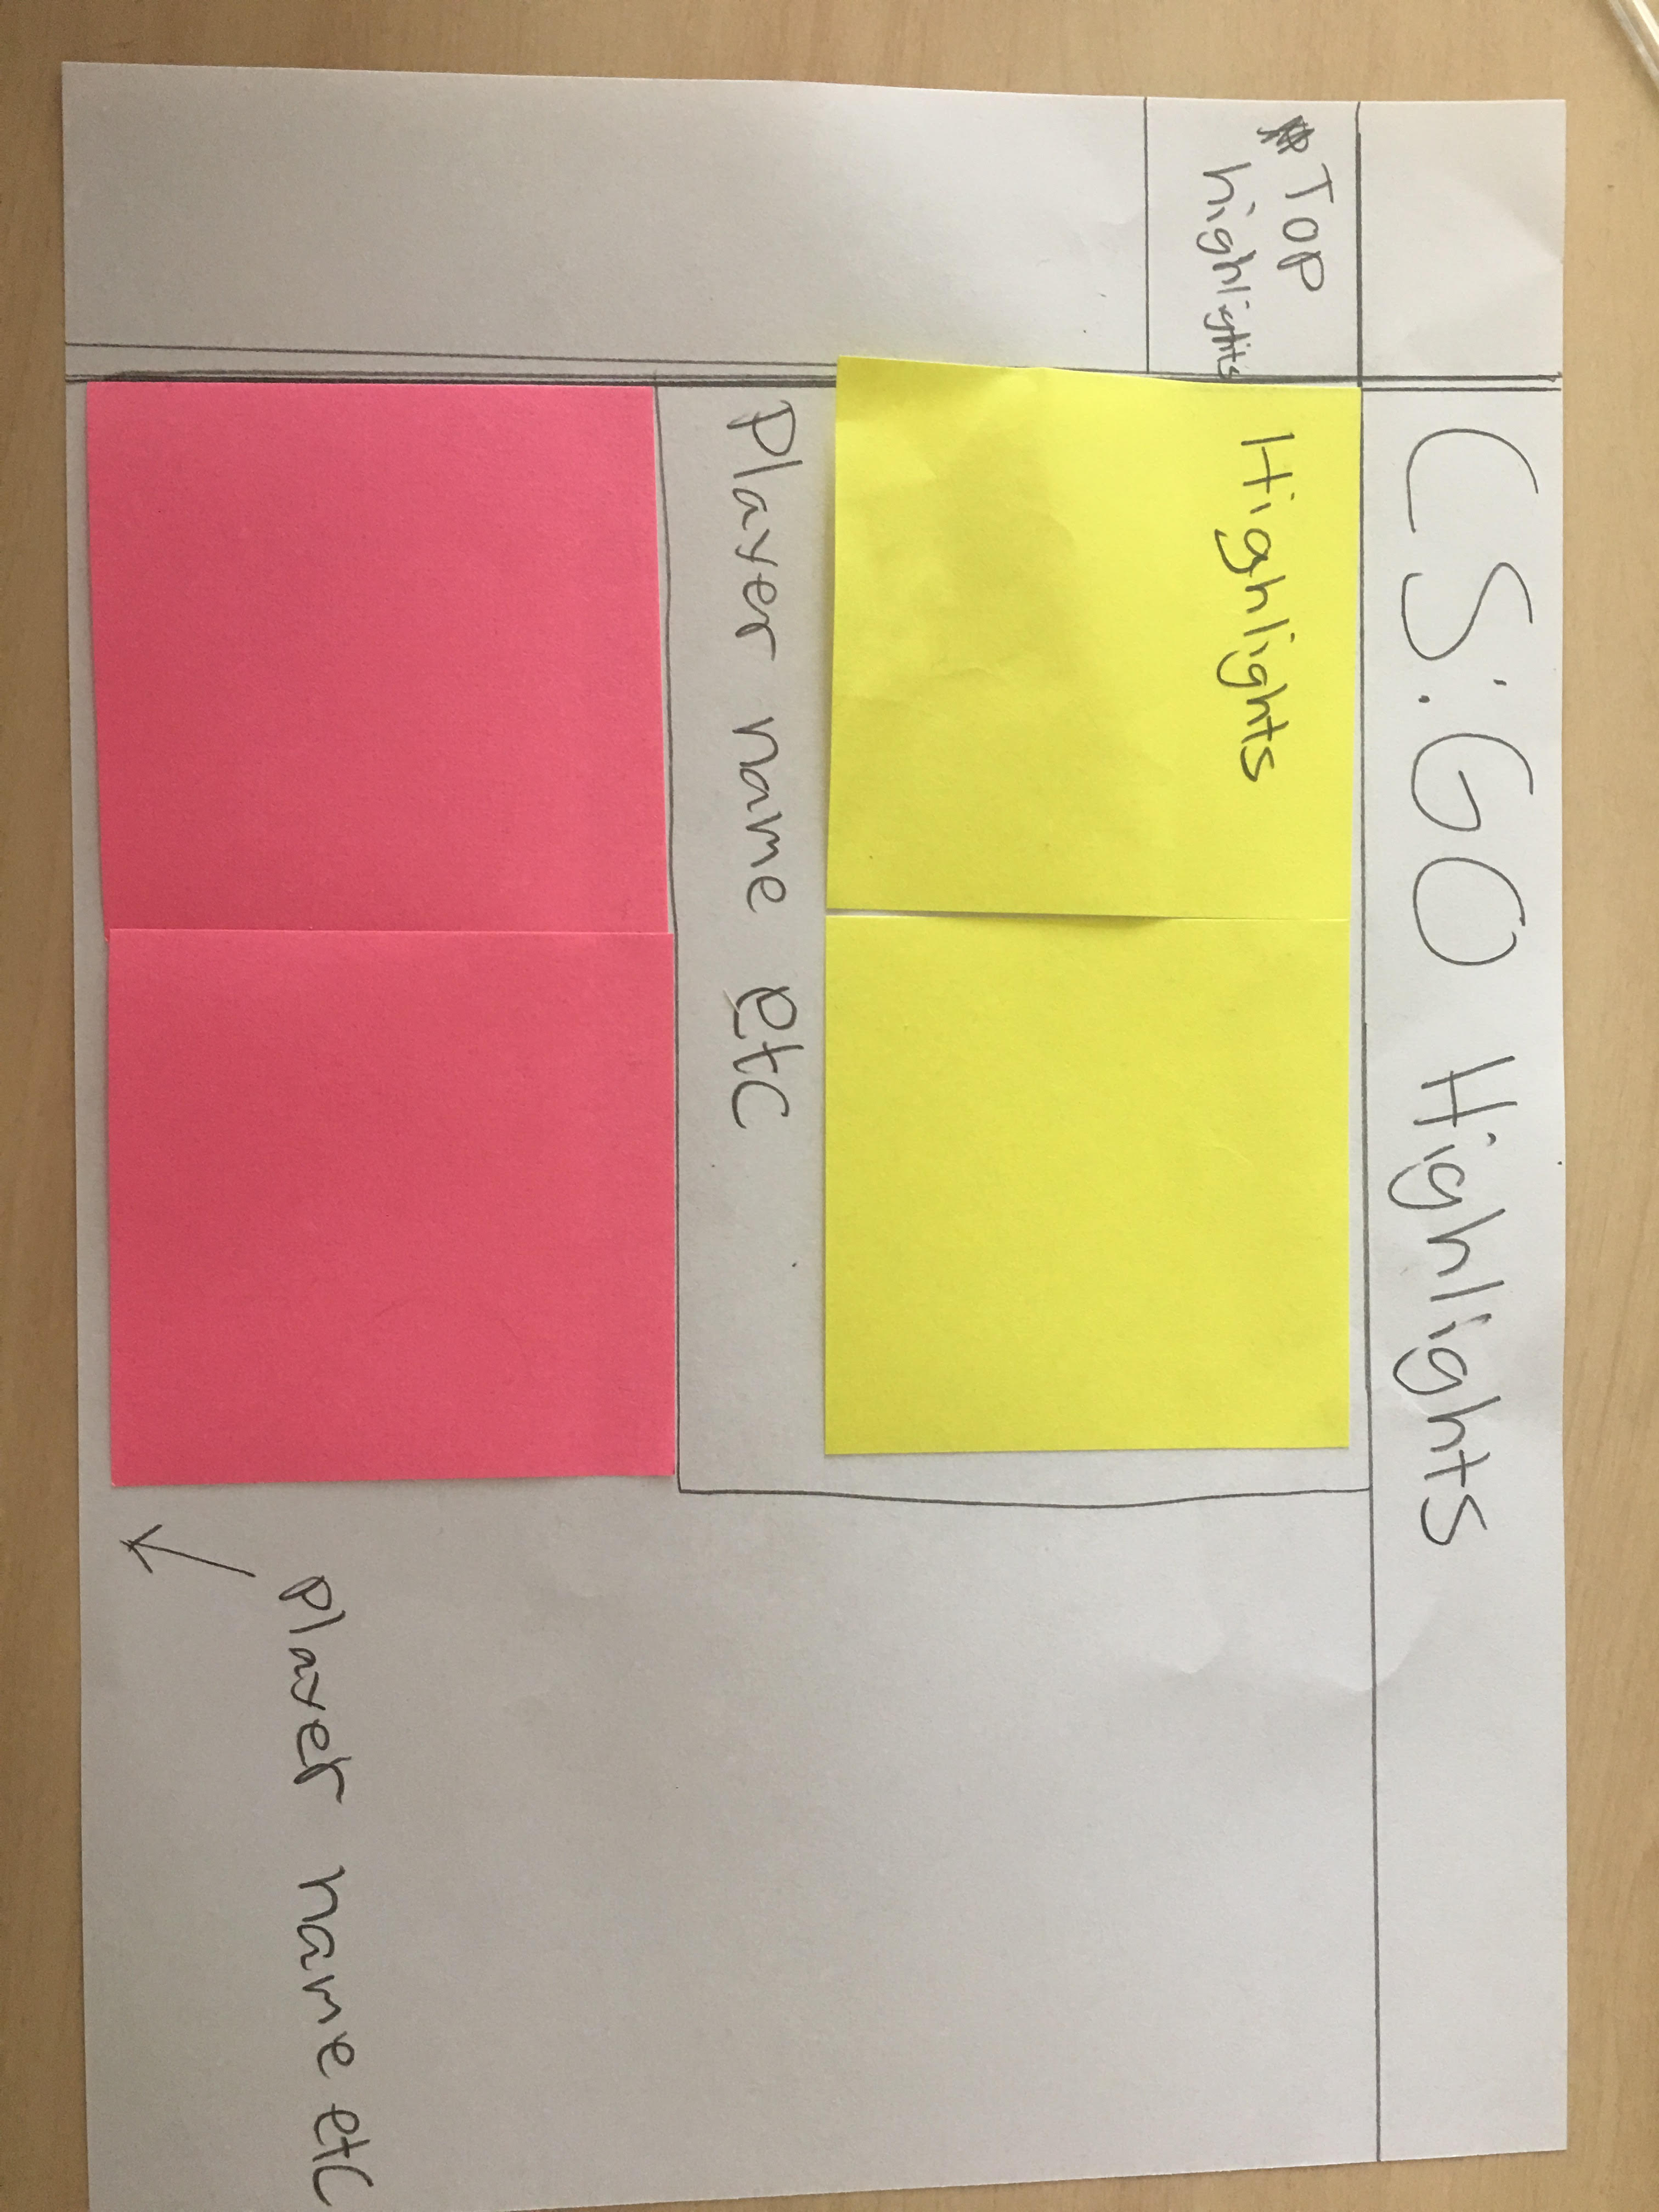 CS:GO Highlights
TOP
highlights
Highlights
Player name etc
Player name etc